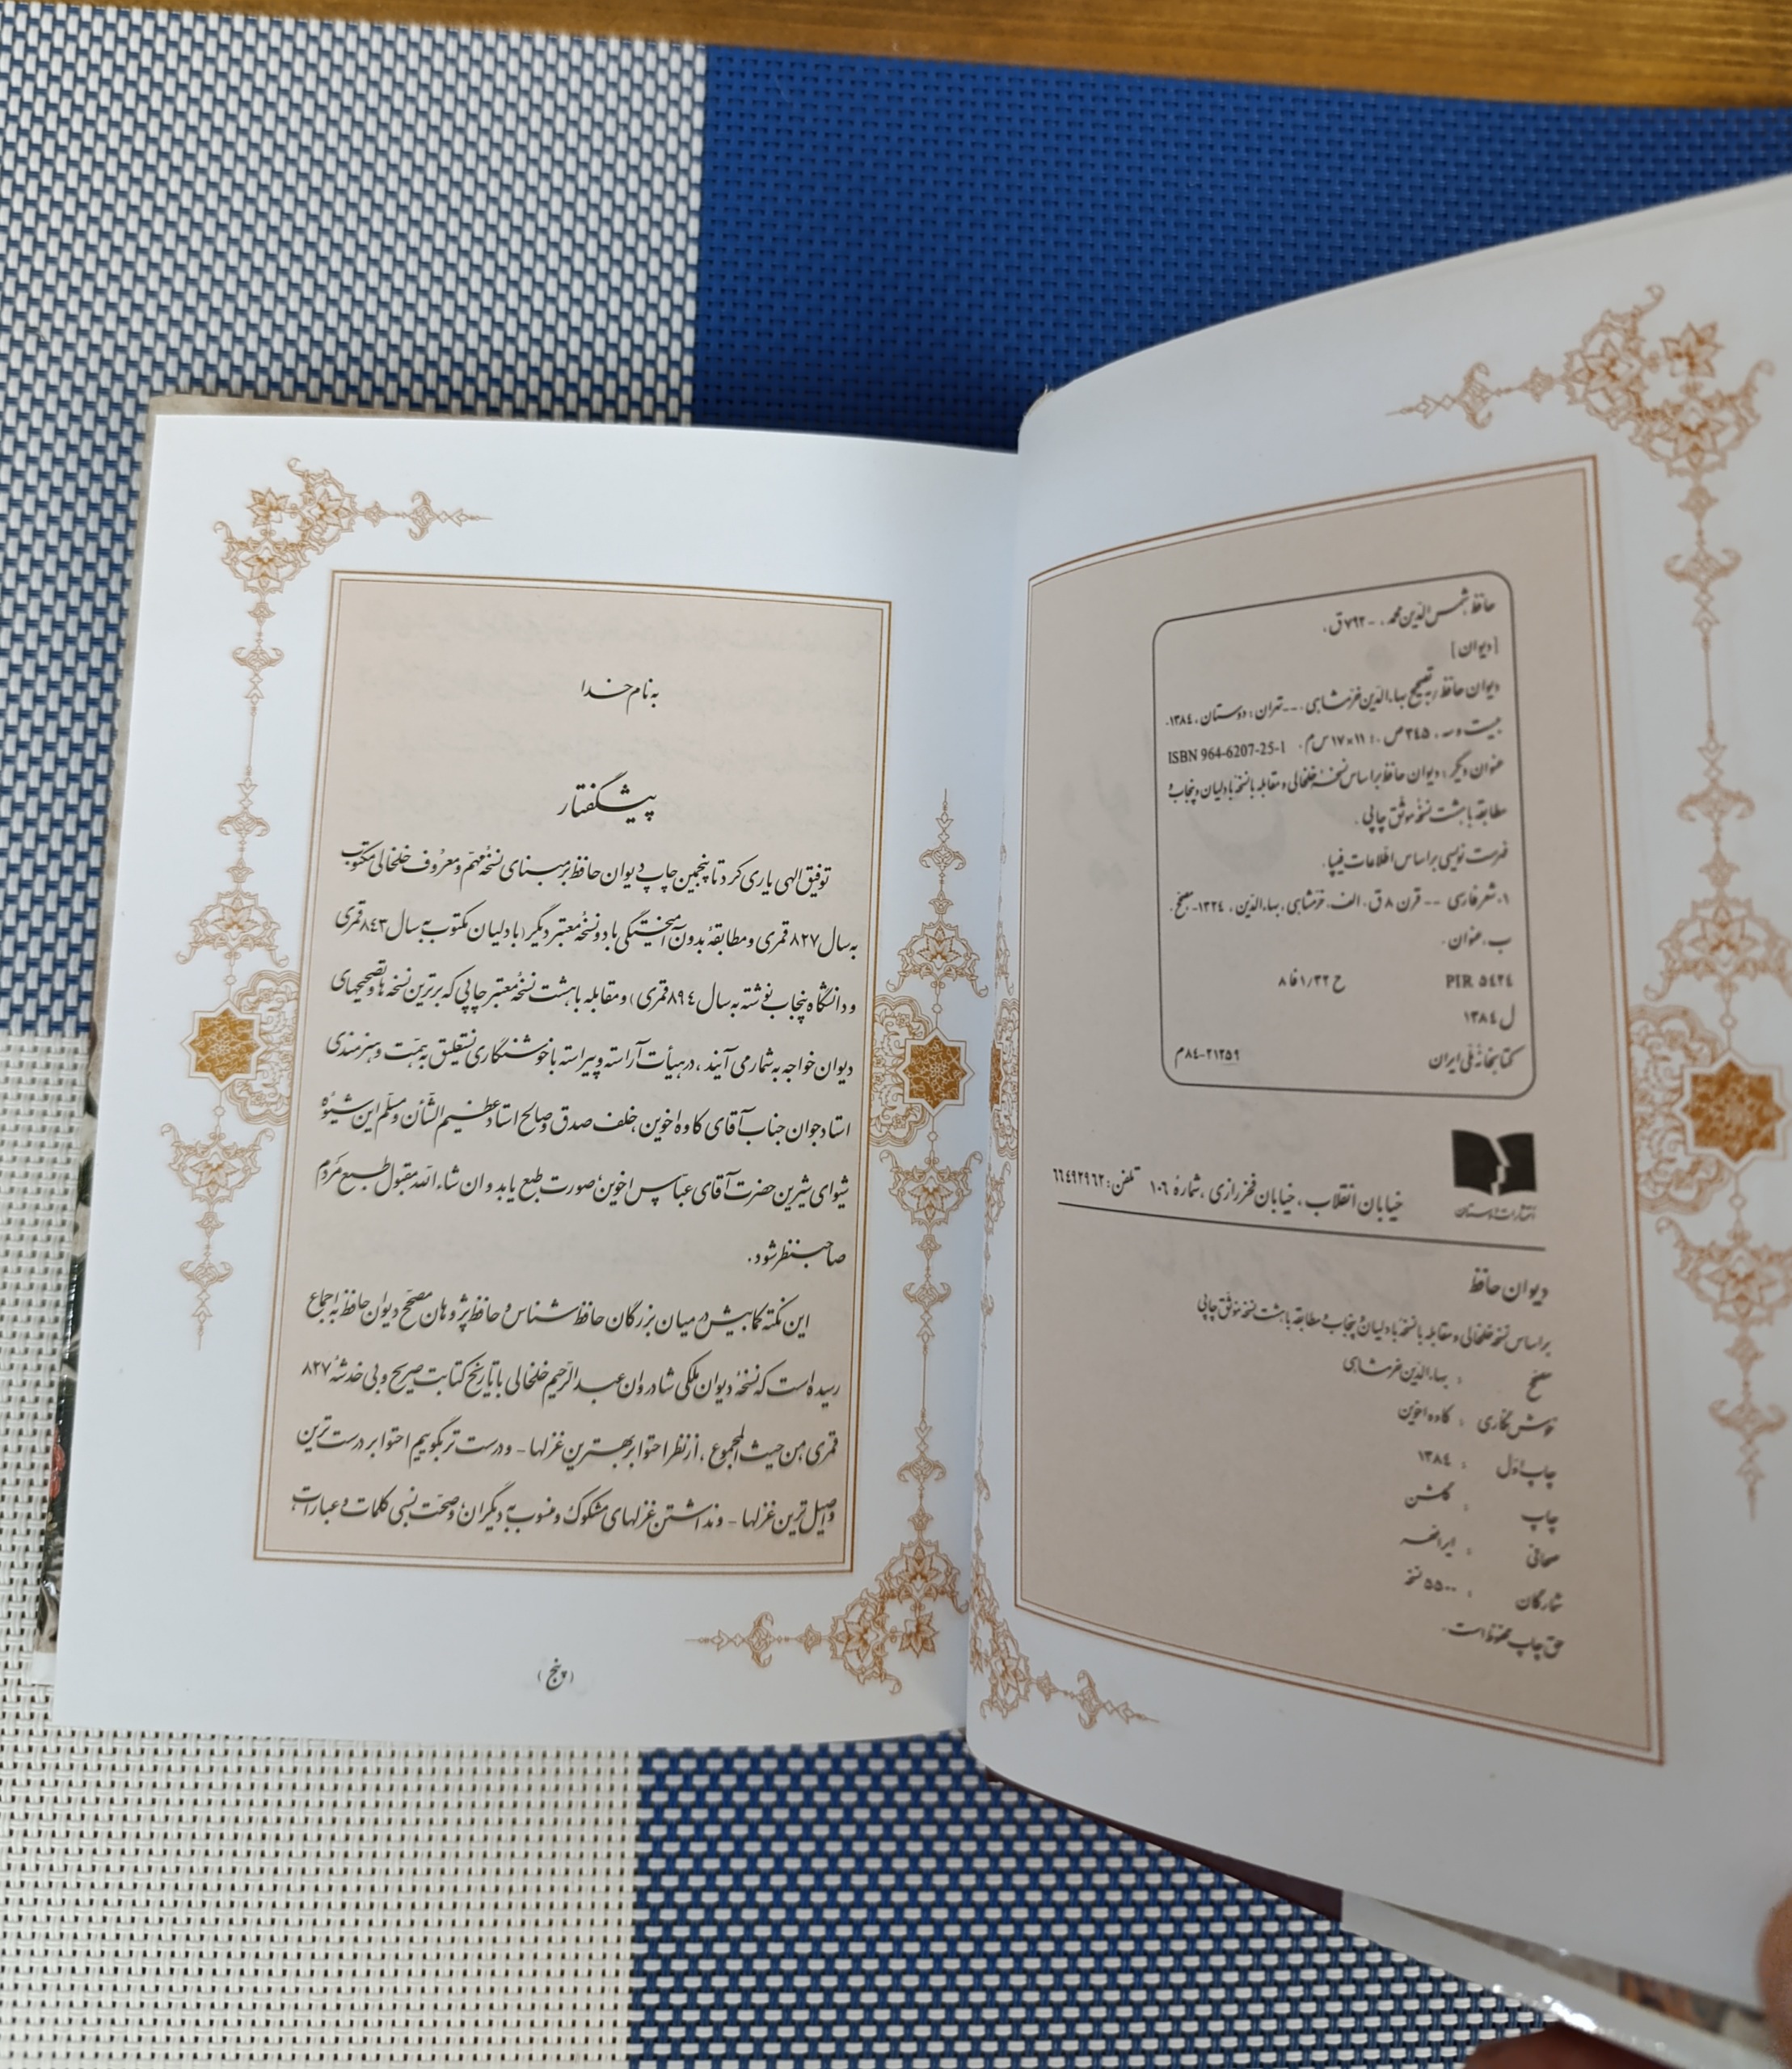 حافظ، شمس‌الدّین محمد، -۷۹۲ق.
[دیوان]
دیوان حافظ / به تصحیح بهاءالدّین خرّمشاهی. -- تهران: دوستان، ۱۳۸٤.
بیست و سه، ۳٤۵ص.: ۱۱×۱۷س م. ISBN 964-6207-25-1
عنوان دیگر: دیوان حافظ براساس نسخهٔ خلخالی و مقابله با نسخهٔ بادلیان و پنجاب و
مطابقه با هشت نسخهٔ موثّق چاپی.
فهرست نویسی براساس اطّلاعات فیپا.
۱. شعر فارسی -- قرن ۸ق. الف. خرّمشاهی، بهاءالدّین، ۱۳۲٤- مصحّح.
ب. عنوان.
PIR ۵٤۲٤ ح ۱/۳۲فا۸
ل ۱۳۸٤
کتابخانهٔ ملّی ایران ۲۱۲۵۹-۸٤م
انتشارات دوستان
خیابان انقلاب، خیابان فخررازی، شمارهٔ ۱۰٦ تلفن: ٦٦٤۹۲۹٦۲
دیوان حافظ
براساس نسخهٔ خلخالی و مقابله با نسخهٔ بادلیان و پنجاب و مطابقه با هشت نسخهٔ موثّق چاپی
مصحّح : بهاءالدّین خرمشاهی
خوش نگاری : کاوه اخوین
چاپ اوّل : ۱۳۸٤
چاپ : گلشن
صحافی : ایرانمهر
شمارگان : ۵۵۰۰ نسخه
حق چاپ محفوظ است.
به نام خدا
پیشگفتار
توفیق الهی یاری کرد تا پنجمین چاپ دیوان حافظ بر مبنای نسخهٔ مهم و معروف خلخالی مکتوب
به سال ۸۲۷ قمری و مطابقهٔ بدون آمیختگی با دو نسخهٔ معتبر دیگر (بادلیان مکتوب به سال ۸٤۳ قمری
و دانشگاه پنجاب نوشته به سال ۸۹٤ قمری) و مقابله با هشت نسخهٔ معتبر چاپی که برترین نسخه‌ها و تصحیحهای
دیوان خواجه به شمار می آیند، در هیأت آراسته و پیراسته با خوشنگاری نستعلیق به همّت و هنرمندی
استاد جوان جناب آقای کاوه اخوین، خلف صدق و صالح استاد عظیم الشّأن و مسلّم این شیوهٔ
شیوای شیرین حضرت آقای عبّاس اخوین، صورت طبع یابد و ان شاءالله مقبول طبع مردم
صاحبنظر شود.
این نکته کمابیش در میان بزرگان حافظ شناس و حافظ پژوهان مصحّح دیوان حافظ به اجماع
رسیده است که نسخهٔ دیوان ملکی شادروان عبدالرّحیم خلخالی با تاریخ کتابت صریح و بی خدشهٔ ۸۲۷
قمری، من حیث المجموع، از نظر احتوا بر بهترین غزلها - و درست تر بگوییم احتوا بر درست ترین
و اصیل ترین غزلها - و نداشتن غزلهای مشکوک و منسوب به دیگران و صحّت نسبی کلمات و عبارات،
(پنج)